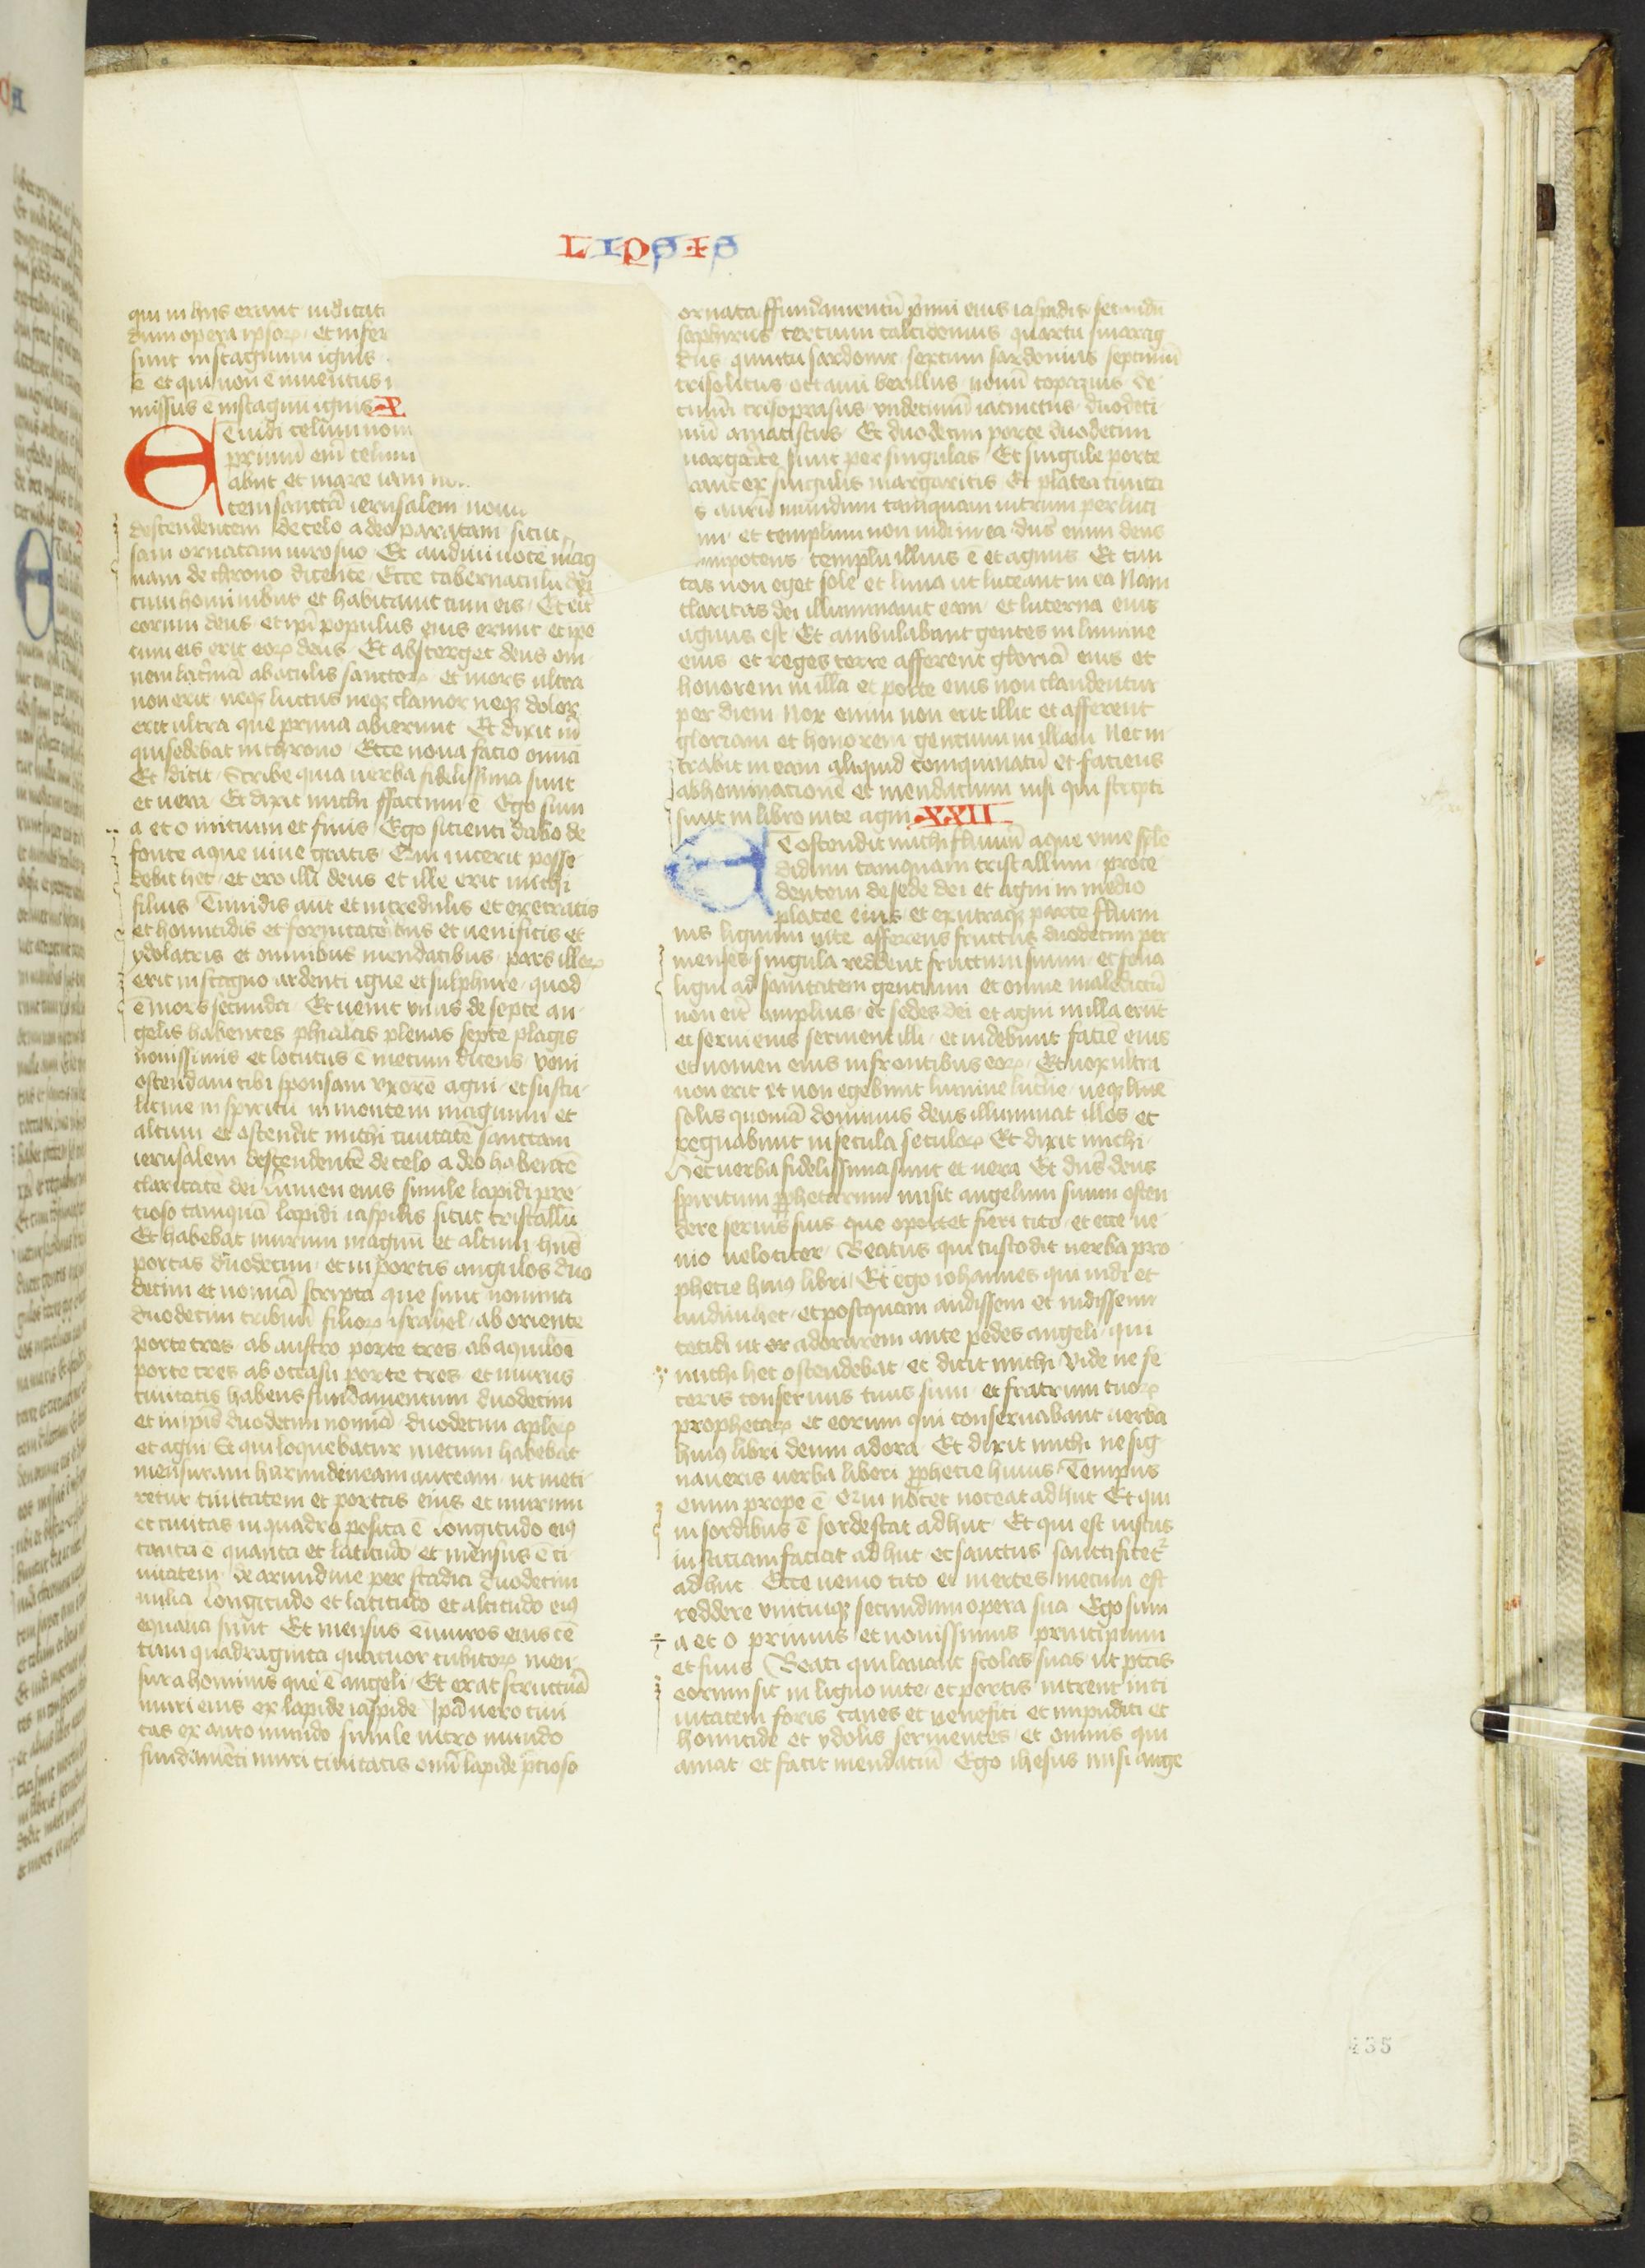 LIPSIS
qui in hijs erant iudicati
dum opera ipsoꝝ · et infer
sunt in stagnum ignis
et qui non ē inuentus
missus ē in stagnū ignis
Et uidi celum nou
primū eni celum
abiit et mare iam non
tem sanctā ierusalem nou
descendentem de celo a deo paratam sicut
sam ornatam uiro suo Et audiui uocē mag
nam de throno dicentē Ecce tabernaculū dei
cum hominibus et habitauit cum eis · Et eit
eorum deus et ipi populus eius erunt et ipe
cum eis erit eoꝝ deus · Et absterget deus om
nem lacrimā ab oculis sanctoꝝ et mors ultra
non erit neqꝫ luctus neqꝫ clamor neqꝫ dolor
erit ultra que prima abierunt Et dixit
qui sedebat in throno · Ecce noua facio omnia
Et dicit · Scribe quia uerba fidelissima sunt
et uera · Et dixit michi ffactum ē Ego sum
a et o initium et finis Ego sitienti dabo de
fonte aque uiue gratis · Qui uicerit posse
debit hec · et ero illi deus et ille erit michi
filius Timidis aut et incredulis et execratis
et homicidis et fornicatoribus et ueneficis et
ydolatris et omnibus mendacibus · pars illoꝝ
erit in stagno ardenti igne et sulphure · quod
ē mors secunda · Et uenit unus de septē an
gelis habentes phialas plenas septē plagis
nouissimis et locutus ē mecum dicens · veni
ostendam tibi sponsam vxorē agni · et sustu
lit me in spiritu in montem magnum et
altum et ostendit michi ciuitatē sanctam
ierusalem descendentē de celo a deo habentē
claritatē dei Lumen eius simile lapidi pre
cioso tamquā lapidi iaspidis sicut cristallū
Et habebat murum magnū et altum hns
portas duodecim · et in portis angulos duo
decim et nomīa scripta que sunt nomina
duodecim tribuū filioꝝ israhel · ab oriente
porte tres ab austro porte tres · ab aquilōe
porte tres ab occasu porte tres et murus
ciuitatis habens fundamentum duodecim
et in ipis duodecim nomīa duodecim aplōꝝ
et agni Et qui loquebatur mecum habebat
mensuram harundineam auream · ut meti
retur ciuitatem et portas eius et murum
et ciuitas in quadro posita ē Longitudo eiꝰ
tanta ē quanta et latitudo · et mensus ē ci
uitatem de arundine per stadia duodecim
milia Longitudo et latitudo et altitudo eiꝰ
equalia sunt Et mensus ē muros eius cē
tum quadraginta quatuor cubitoꝝ men
sura hominis que ē angeli · Et erat structurā
muri eius ex lapide iaspide Ipā uero ciui
tas ex auro mundo simile uitro mundo
fundamēti muri ciuitatis omī lapide p̄cioso
ornata ffundamentū primi eius iaspidis secundū
saphirus · tercium calcidonius quartū smarag
dus quintū sardonix sextum sardonius septimū
crisolitus · octauū berillus · nonū topazius de
cimū crisoprasus · vndecimū iacinctus · duodeci
mū amatistus · Et duodecim porte duodecim
margarite sunt per singulas · Et singule porte
ant ex singulis margaritis · Et platea ciuita
s aurū mundum tamquam uitrum perluci
m · et templum non uidi in ea · dns enim deus
mnipotens · templū illius ē et agnus · Et ciui
tas non eget sole et luna ut luceant in ea Nam
claritas dei illuminauit eam · et lucerna eius
agnus est · Et ambulabant gentes in lumine
eius et reges terre afferent gloriā eius et
honorem in illa et porte eius non claudentur
per diem Nox enim non erit illic et afferent
gloriam et honorem gentium in illam Nec in
trabit in eam aliquid coinquinatū et faciens
abhominacionē et mendacium nisi qui scripti
sunt in libro uite agni XXII
Et ostendit michi fluuiū aque viue sple
didum tamquam cristallum · proce
dentem de sede dei et agni in medio
platee eius · et ex utraqꝫ parte flum
nis lignum uite afferens fructus duodecim per
menses singula reddent fructum suum · et folia
ligni ad sanitatem gentium et omne maledictū
non eit amplius · et sedes dei et agni in illa erūt
et serui eius seruient illi · et uidebunt faciē eius
et nomen eius in frontibus eoꝝ · Et nox ultra
non erit et non egebunt lumine lucrne · neqꝫ lūie
solis quoniā dominus deus illuminat illos et
regnabunt in secula seculoꝝ Et dixit michi ·
Hec uerba fidelissima sunt et uera Et dns deus
spirituum pphetarum misit angelum suum osten
dere seruis suis que oportet fieri cito · et ecce ue
nio uelociter · Beatus qui custodit uerba pro
phecie huiꝰ libri · Et ego iohannes qui uidi et
audiui hec · et postquam audissem et uidissem
cecidi ut et adorarem ante pedes angeli · qui
michi hec ostendebat · et dicit michi Vide ne fe
ceris conseruus tuus sum · et fratrum tuoꝝ
prophetaꝝ et eorum qui conseruabant uerba
huiꝰ libri deum adora · Et dixit michi ne sig
naueris uerba libri pphecie huius · Tempus
enim prope ē Qui nocet noceat adhuc Et qui
in sordibus ē sordescat adhuc · Et qui est iustus
iusticiam faciat adhuc et sanctus sanctificetʳ
adhuc Ecce uenio cito et merces mecum est
reddere vnicuiqꝫ secundum opera sua Ego sum
a et o primus et nouissimus principium
et finis Beati qui lauant stolas suas ut ptās
eorum sit in ligno uite · et portis intrent in ci
uitatem foris canes et venefici et impudici et
homicide et ydolis seruientes · et omnis qui
amat et facit mendaciū Ego ihesus misi ange
435